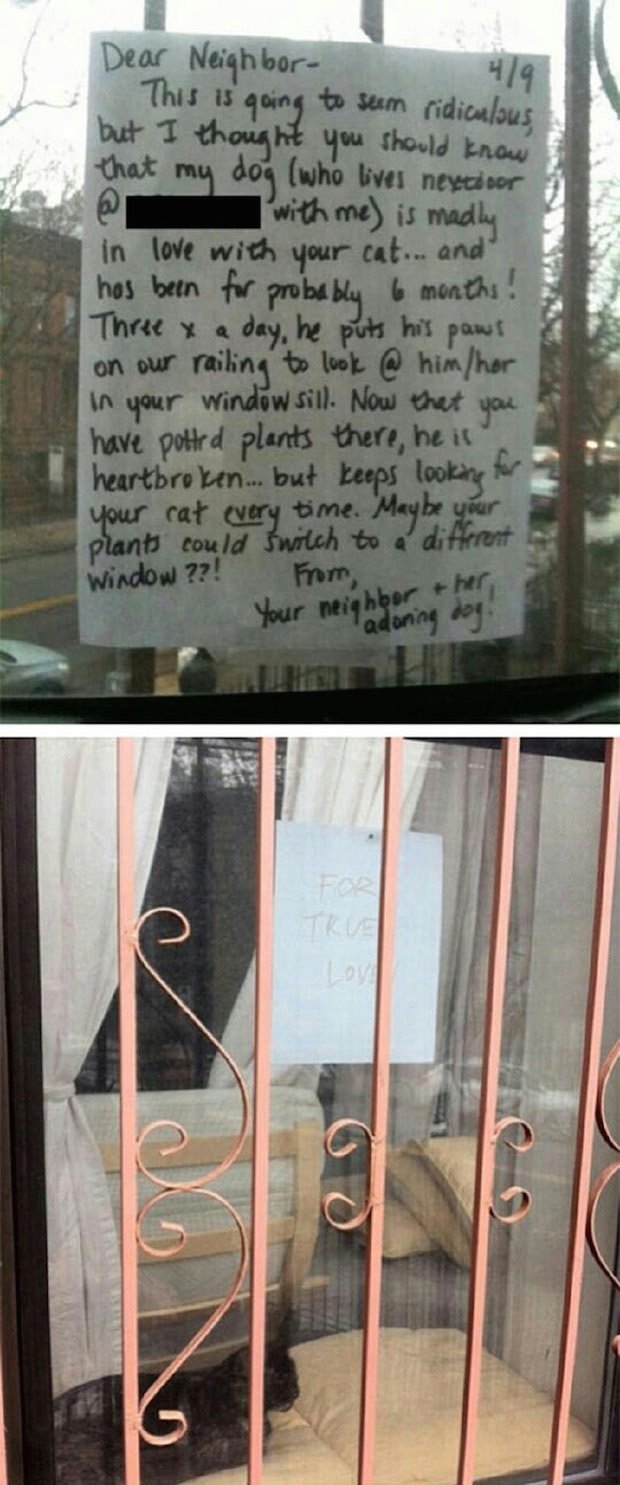 Dear Neighbor- 4/9
This is going to seem ridiculous,
but I thought you should know
that my dog (who lives nextdoor
@ with me) is madly
in love with your cat... and
has been for probably 6 months!
Three x a day, he puts his paws
on our railing to look @ him/her
in your window sill. Now that you
have potted plants there, he is
heartbroken... but keeps looking for
your cat every time. Maybe your
plants could switch to a different
window??! From,
Your neighbor + her
adoring dog!
FOR
TRUE
LOVE